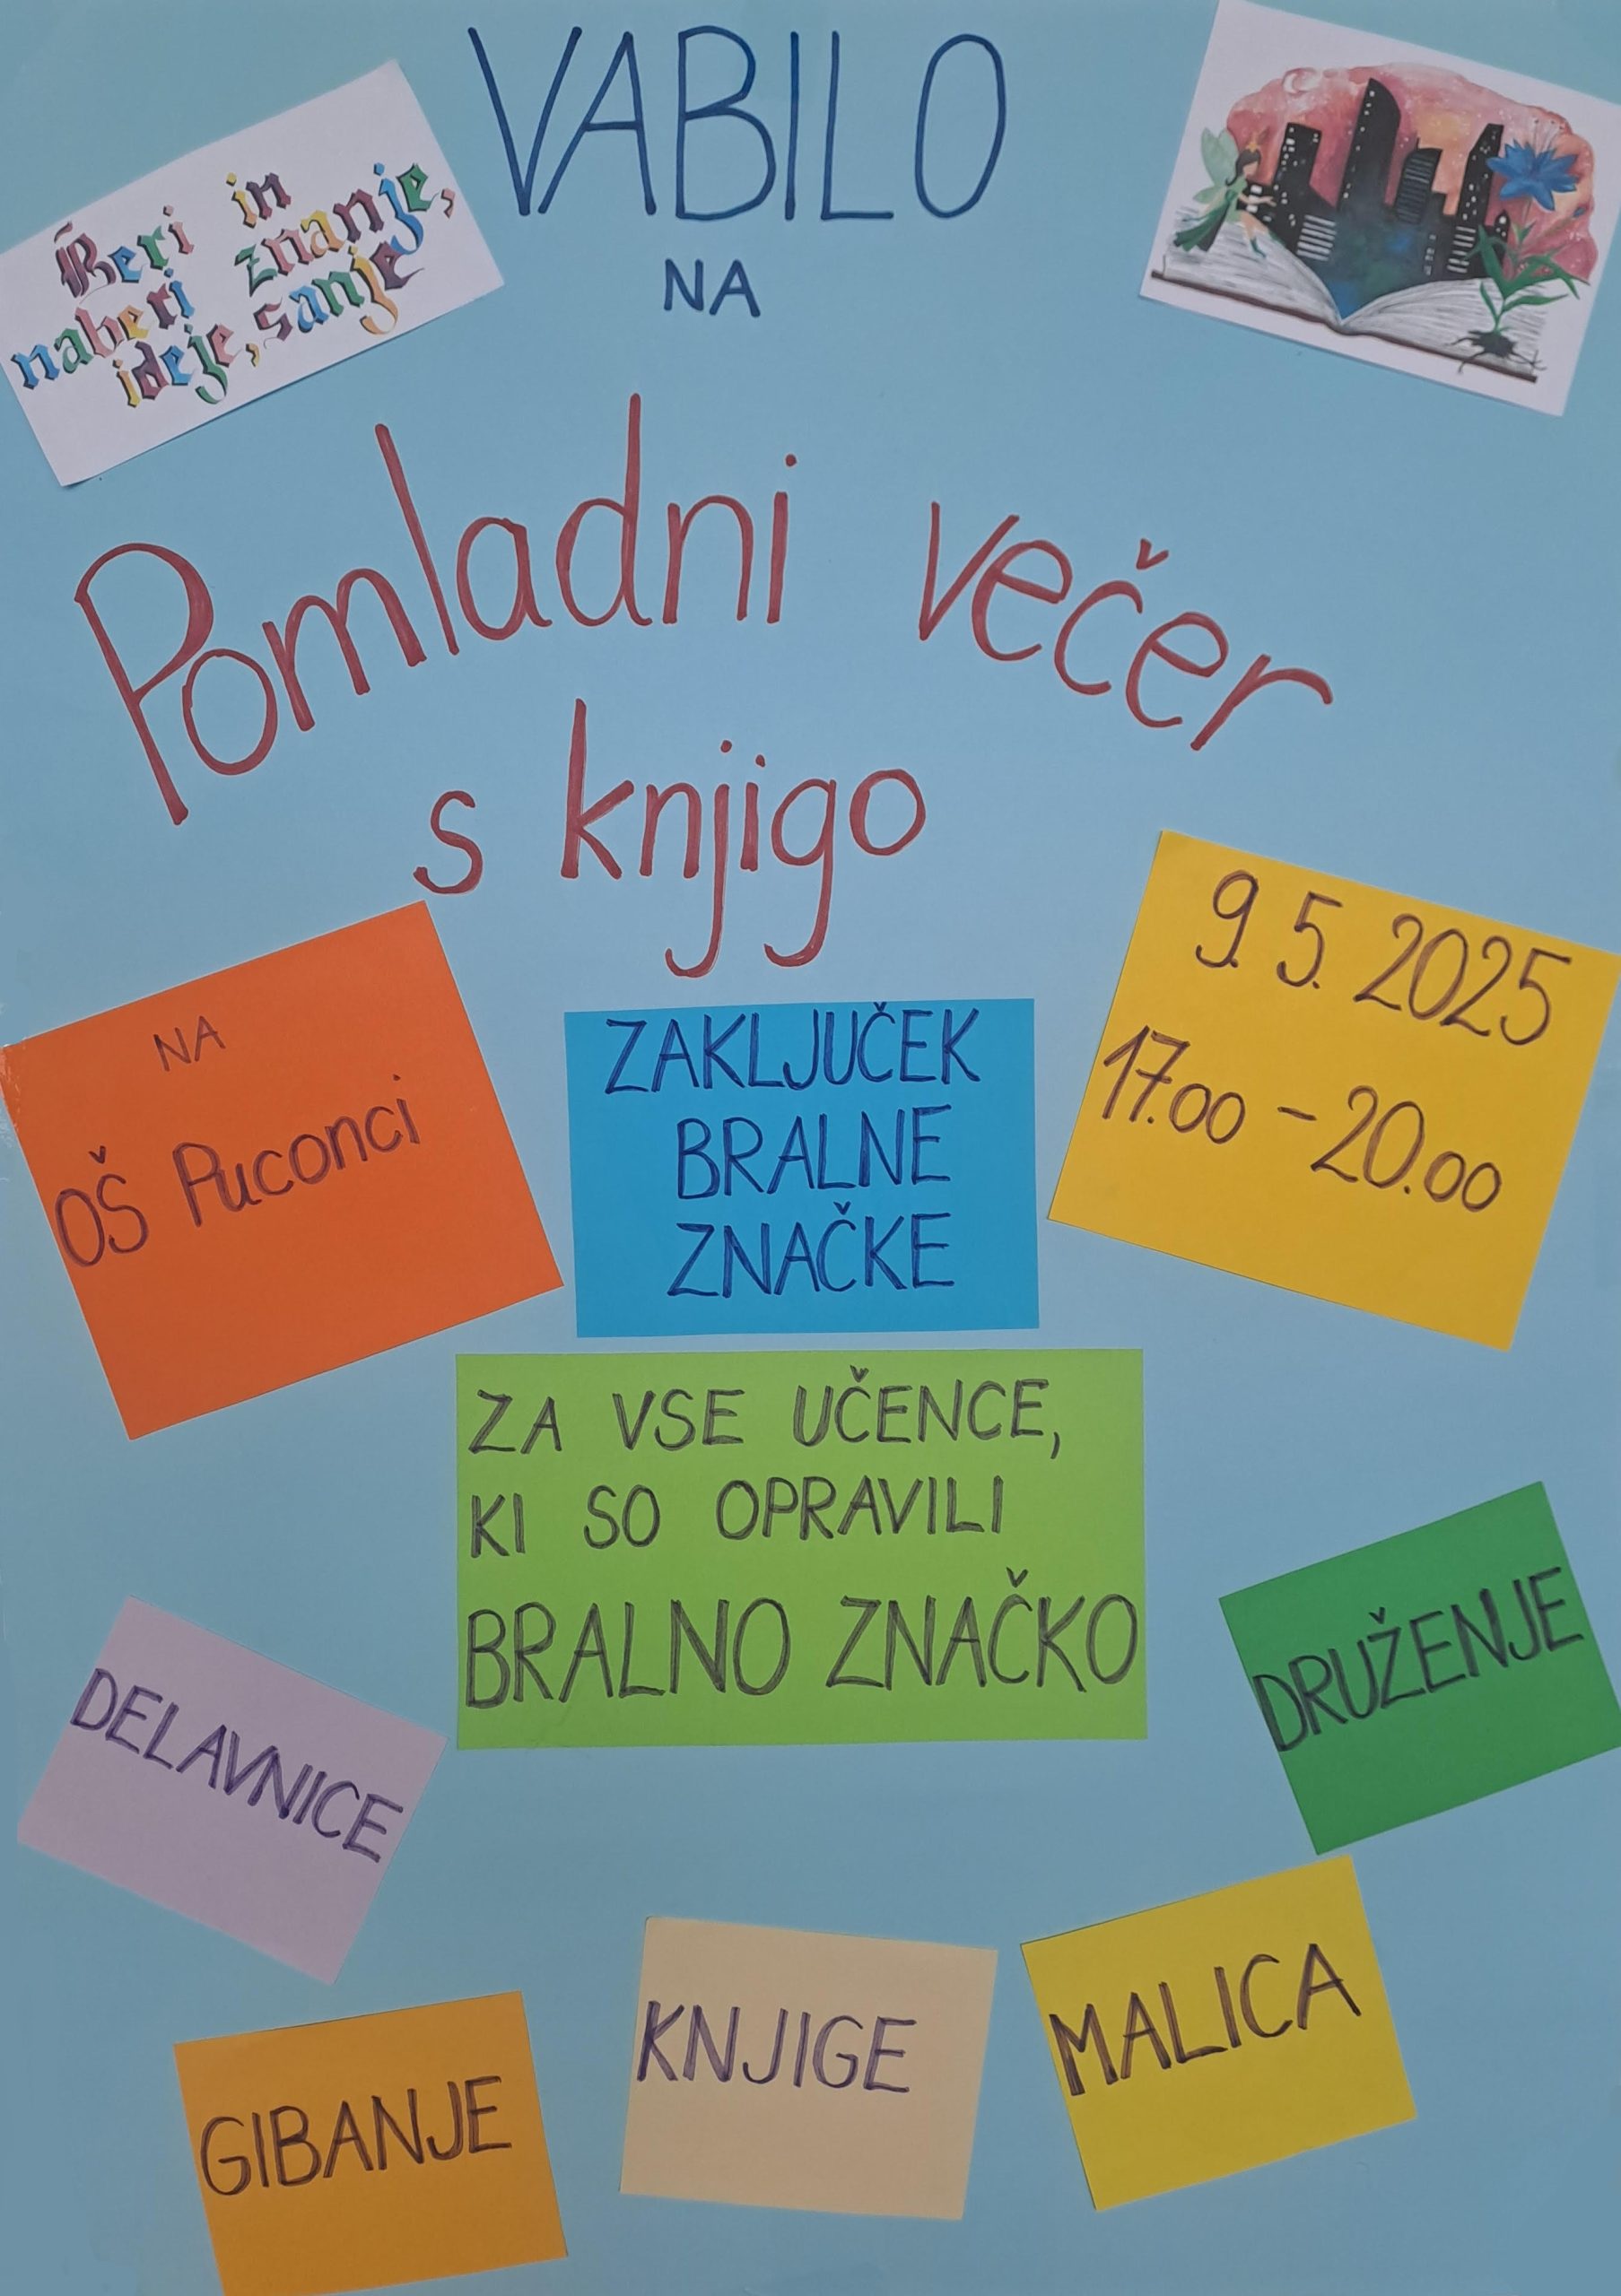 VABILO
NA
Beri in
naberi znanje,
ideje, sanje
Pomladni večer
s knjigo
NA
OŠ Puconci
ZAKLJUČEK
BRALNE
ZNAČKE
9. 5. 2025
17.00 - 20.00
ZA VSE UČENCE,
KI SO OPRAVILI
BRALNO ZNAČKO
DELAVNICE
DRUŽENJE
GIBANJE
KNJIGE
MALICA